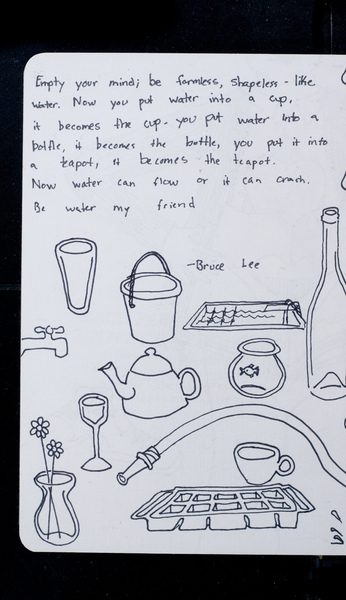 Empty your mind; be formless, shapeless - like
water. Now you put water into a cup,
it becomes the cup - you put water into a
bottle, it becomes the bottle, you put it into
a teapot, it becomes the teapot.
Now water can flow or it can crash.
Be water my friend
-Bruce Lee